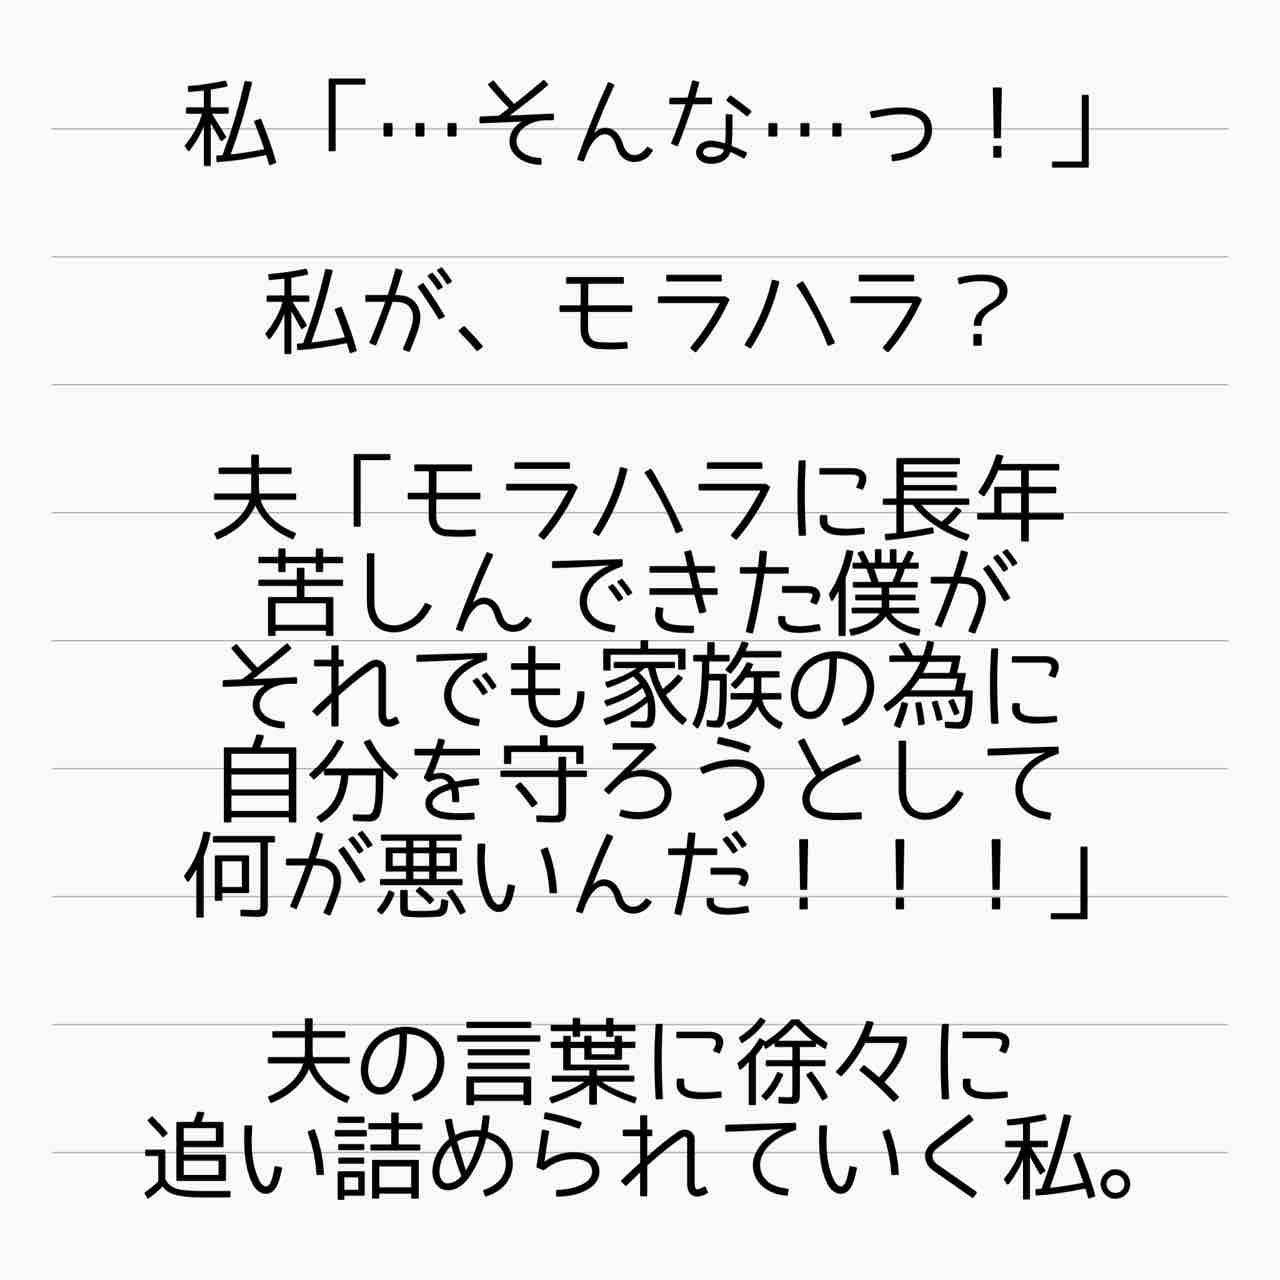 私「…そんな…っ！」
私が、モラハラ？
夫「モラハラに長年
苦しんできた僕が
それでも家族の為に
自分を守ろうとして
何が悪いんだ！！！」
夫の言葉に徐々に
追い詰められていく私。